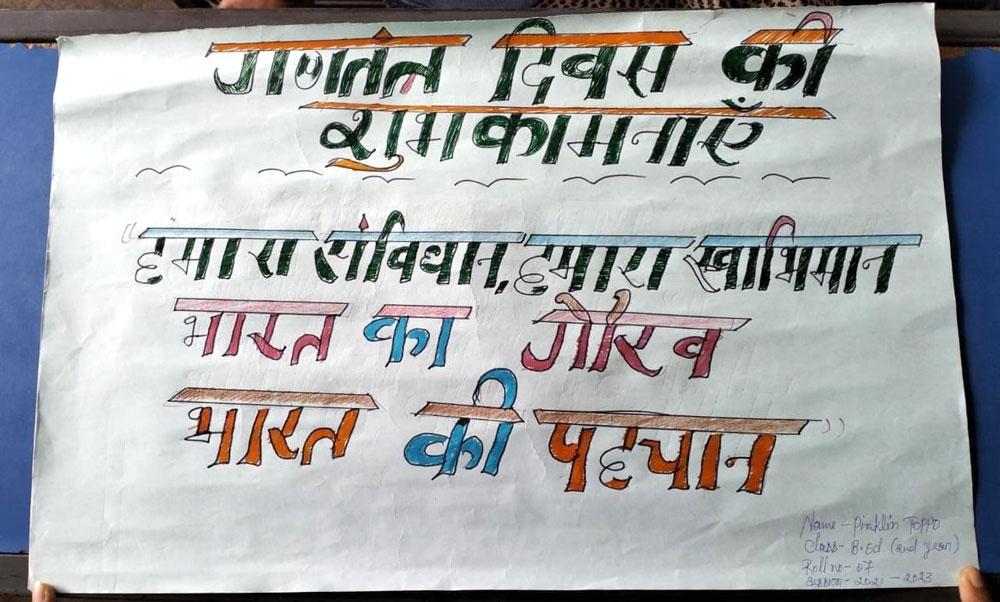 गणतंत्र दिवस की
शुभकामनाएँ
"हमारा संविधान, हमारा स्वाभिमान
भारत का गौरव
भारत की पहचान"
Name - Pinklin TOPPO
Class - B.Ed (2nd year)
Roll no - 07
session - 2021 - 2023